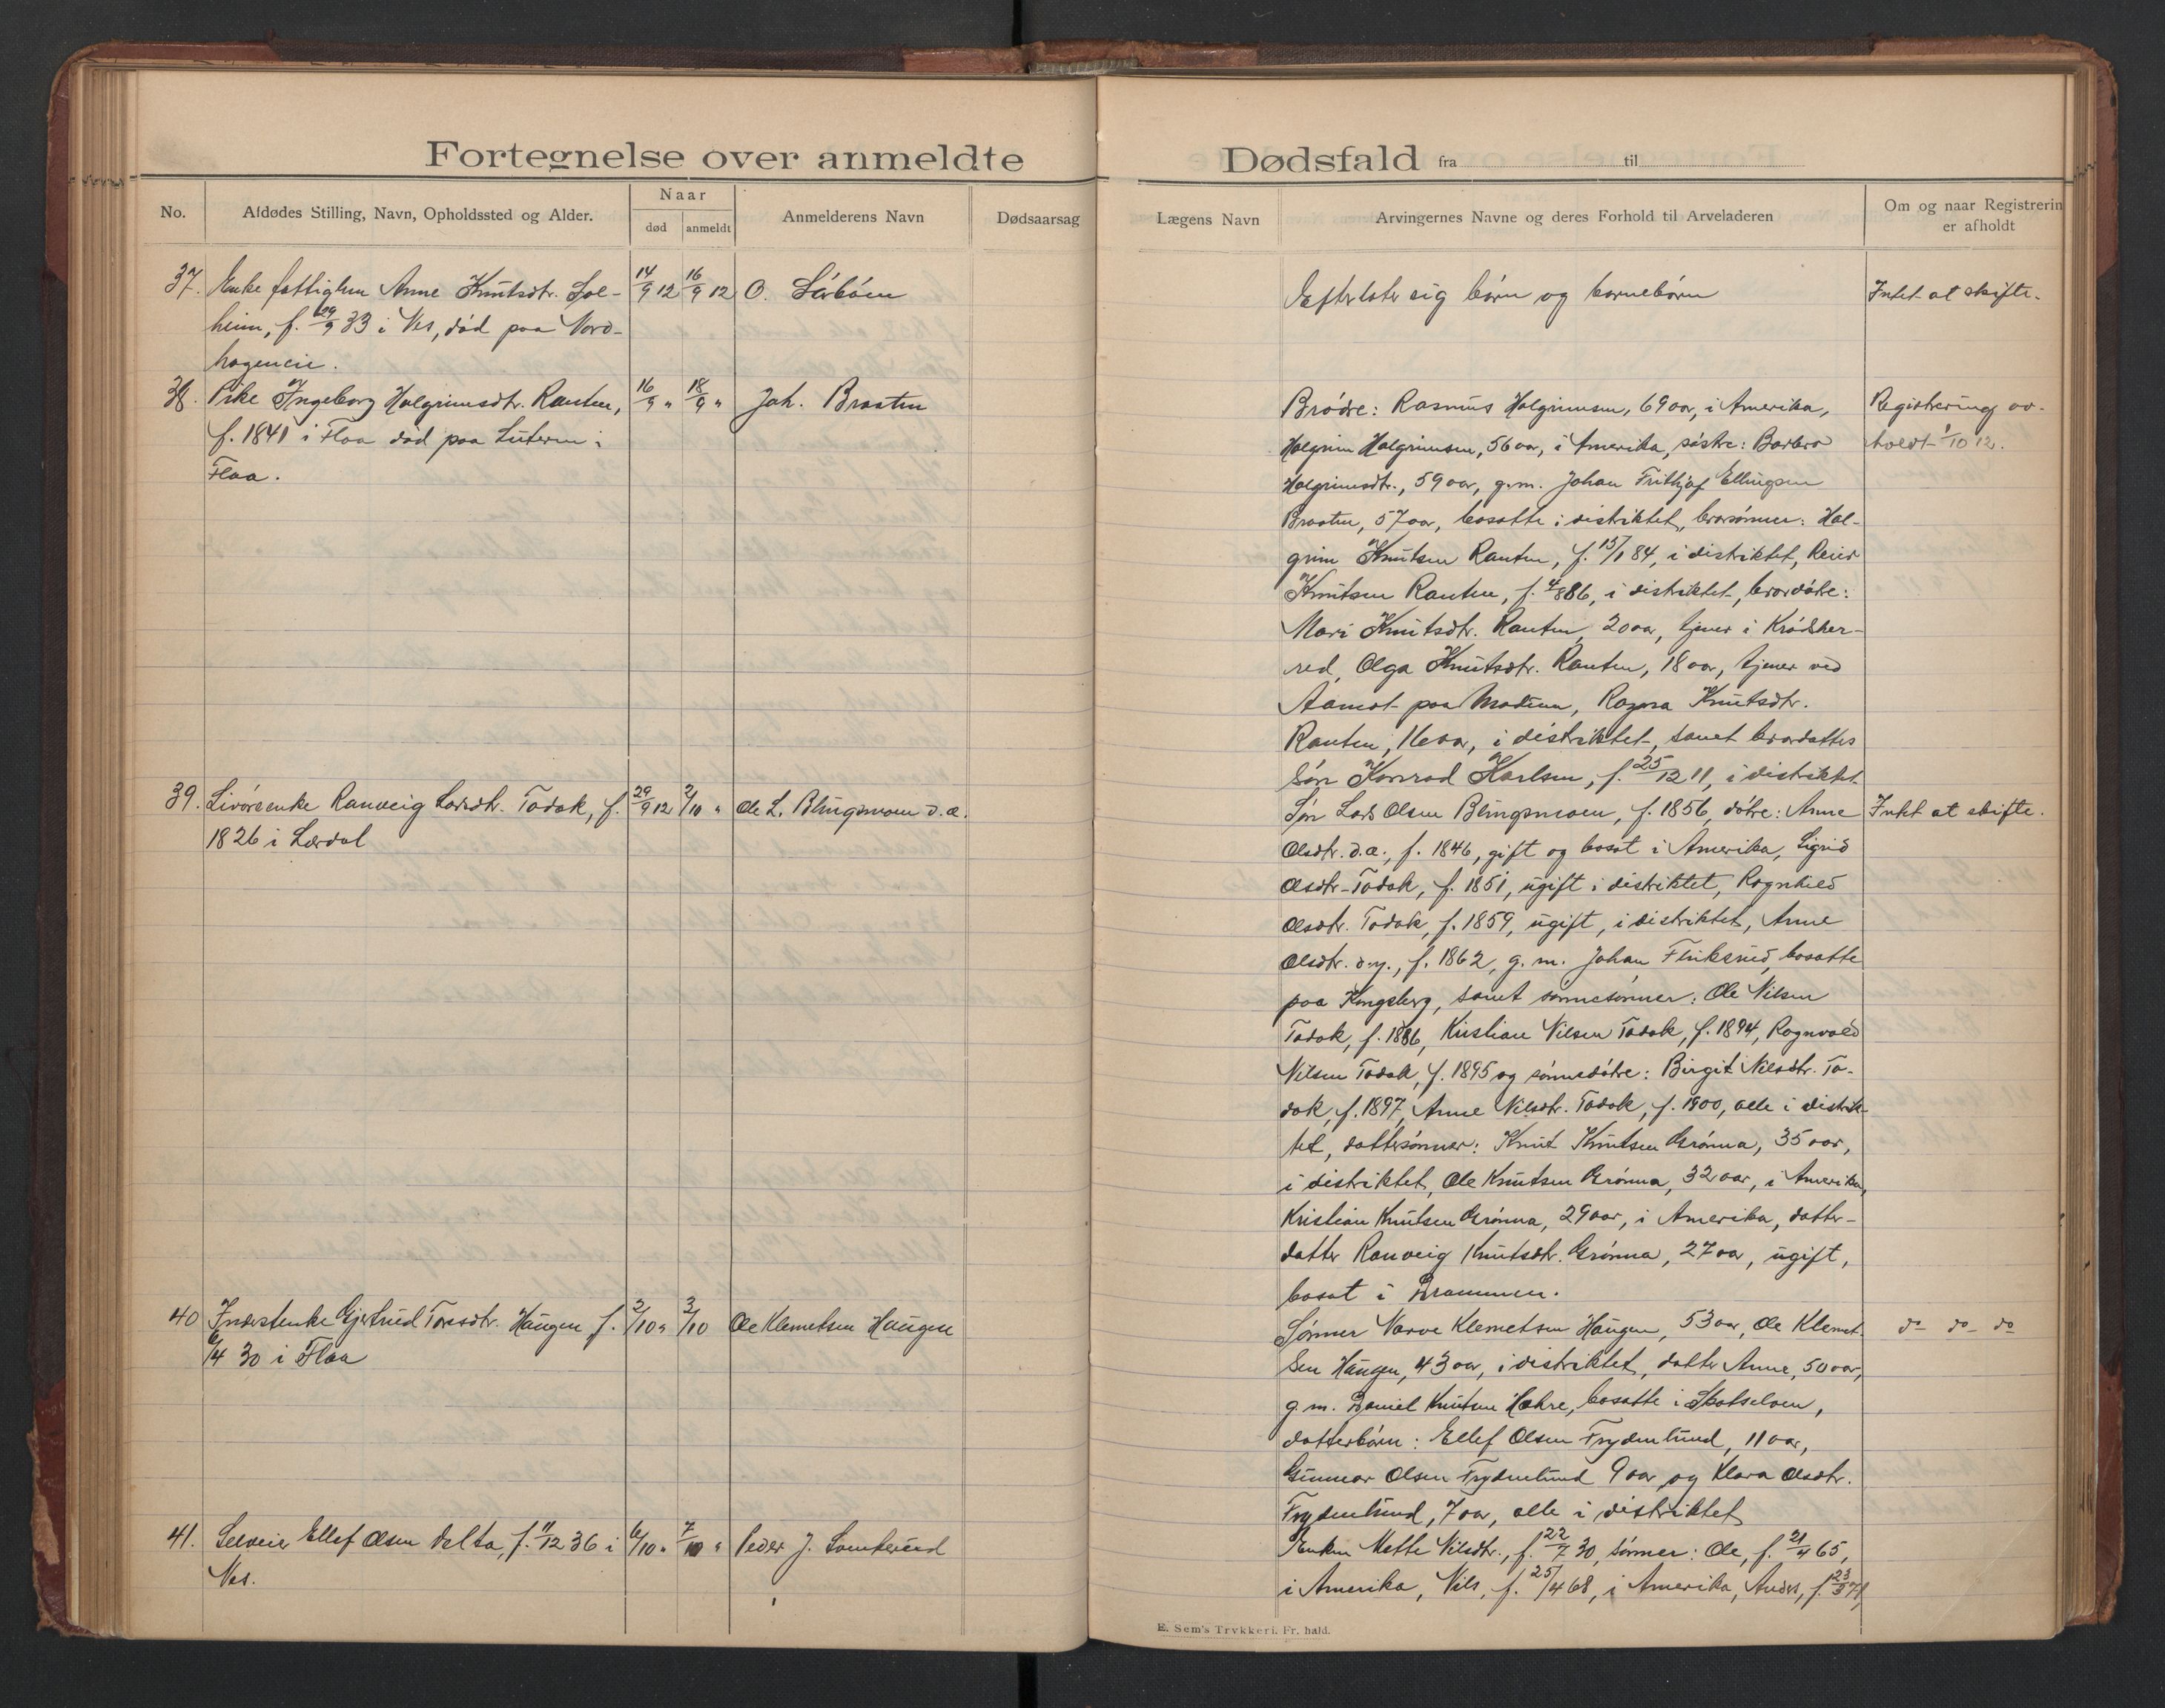 Fortegnelse over anmeldte
Dødsfald fra til
No.
Afdødes Stilling, Navn, Opholdssted og Alder.
Naar
død
anmeldt
Anmelderens Navn
Dødsaarsag
Lægens Navn
Arvingernes Navne og deres Forhold til Arveladeren
Om og naar Registrering
er afholdt
37. Enke fattiglem Anne Knutsdtr. Sol- 14/9 12 16/9 12 O. Sørbøen
heim, f. 29/9 33 i Nes, død paa Nord-
hageneie.
Efterlater sig børn og barnebørn
Intet at skifte.
38. Pike Ingeborg Halgrimsdtr. Rauten, 16/9 " 18/9 " Joh. Braaten
f. 1841 i Flaa død paa i
Flaa.
Brødre: Rasmus Halgrimsen, 69 aar, i Amerika,
Halgrim Halgrimsen, 56 aar, i Amerika, søstre: Barbro
Halgrimsdtr., 59 aar, g.m. Johan Frithjof Ellingsen
Braaten, 57 aar, bosatte i distriktet, brorsønner: Hal-
grim Knutsen Rauten, f. 15/1 84, i distriktet, Reier
Knutsen Rauten, f. 4/8 86, i distriktet, brordøtre:
Mari Knutsdtr. Rauten, 20 aar, tjener i Krødsher-
red, Olga Knutsdtr. Rauten, 18 aar, tjener ved
Aamot paa Modum, Ragna Knutsdtr.
Rauten, 16 aar, i distriktet, samt brordatters
søn Konrad Karlsen, f. 25/12 11, i distriktet
Registrering av-
holdt 1/10 12.
39. Livøreenke Ranveig Larsdtr. Todok, f. 29/9 12 2/10 " Ole L. Blingsmoen d.æ.
1826 i Lærdal
Søn Lars Olsen Blingsmoen, f. 1856, døtre: Anne
Olsdtr. d.æ., f. 1846, gift og bosat i Amerika, Sigrid
Olsdtr. Todok, f. 1851, ugift i distriktet, Ragnhild
Olsdtr. Todok, f. 1859, ugift, i distriktet, Anne
Olsdtr. d.y., f. 1862, g. m. Johan Fliksrud, bosatte
paa Kongsberg, samt sønnesønner: Ole Nilsen
Todok, f. 1886, Kristian Nilsen Todok, f. 1894, Ragnvald
Nilsen Todok, f. 1895 og sønnedøtre: Birgit Nilsdtr. To-
dok, f. 1897, Anne Nilsdtr. Todok, f. 1900, alle i distrik-
tet, dattersønner: Knut Knutsen Grønna, 35 aar,
i distriktet, Ole Knutsen Grønna, 32 aar, i Amerika,
Kristian Knutsen Grønna, 29 aar, i Amerika, datter-
datter Ranveig Knutsdtr. Grønna, 27 aar, ugift,
bosat i Drammen.
Intet at skifte.
40 Inderstenke Gjertrud Torsdtr. Haugen f. 2/10 " 3/10 Ole Klemetsen Haugen
6/4 30 i Flaa
Sønner Narve Klemetsen Haugen, 53 aar, Ole Klemet-
sen Haugen, 43 aar, i distriktet, datter Anne, 50 aar,
g. m. Daniel Knutsen Hæhre, bosatte i Skotselven,
datterbørn: Ellef Olsen Frydenlund, 11 aar,
Gunnar Olsen Frydenlund 9 aar og Klara Olsdtr.
Frydenlund, 7 aar, alle i distriktet
do do do
41. Selveier Ellef Olsen Delta, f. 11/12 36 i 6/10 " 7/10 " Peder J.
Nes.
Enken Mette Nilsdtr., f. 22/7 30, sønner: Ole, f. 21/4 65,
i Amerika, Nils, f. 25/4 68, i Amerika, Anders, f. 23/3 71,
E. Sem's Trykkeri, Fr. hald.